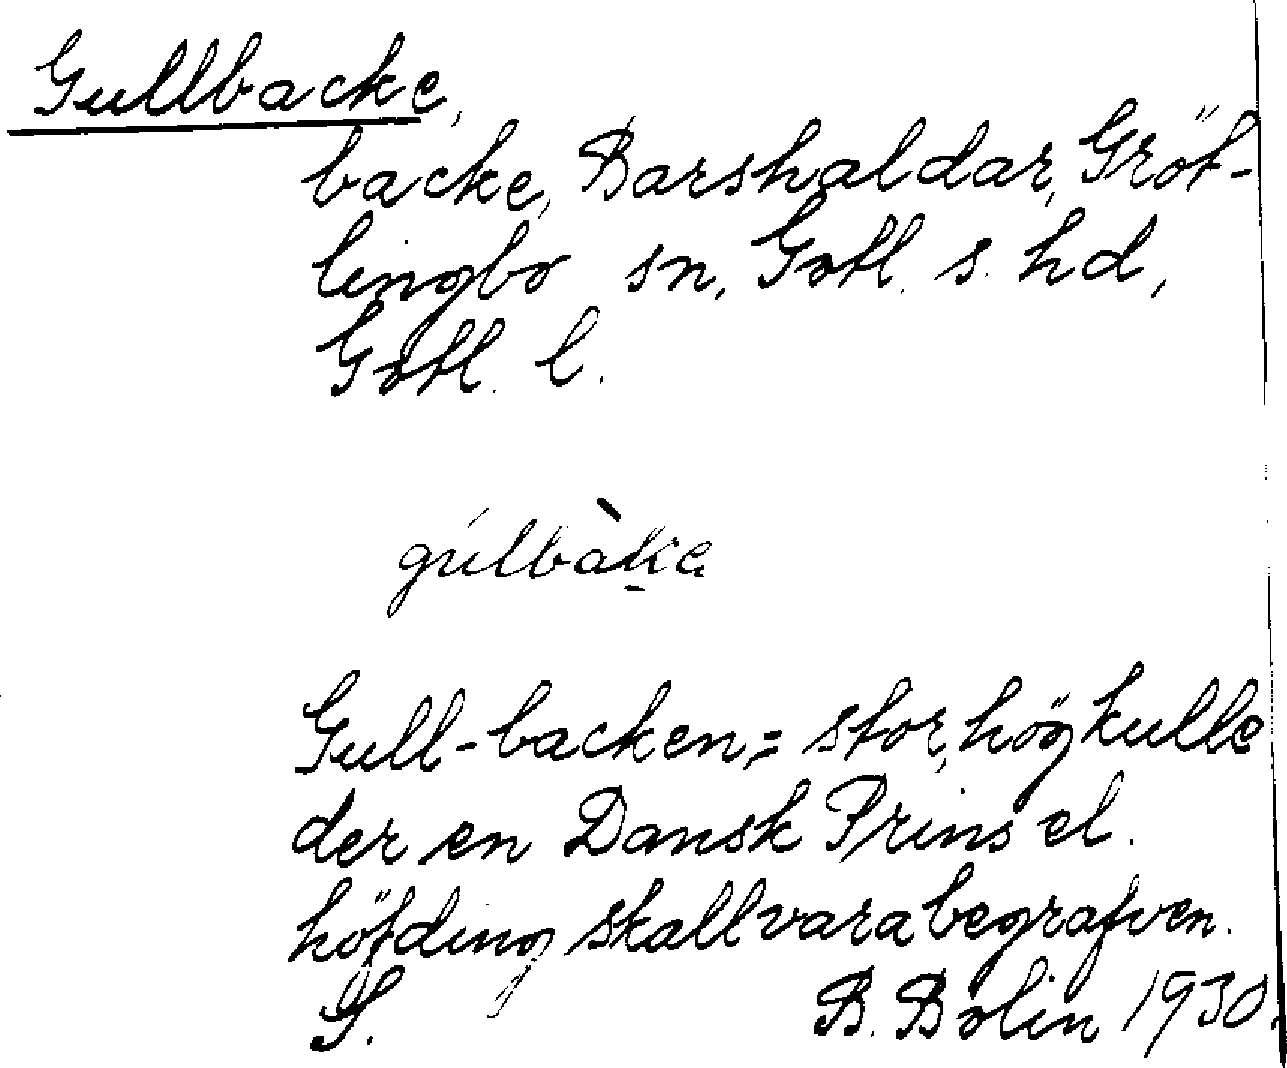 Gullbacke,
backe, Barshaldar, Gröt-
lingbo sn, Gotl. s. hd,
Gotl. l.
gúlbàke
Gull-backen,= stor, hög kulle
der en Dansk Prins el.
höfding skall vara begrafven.
S. B. Bolin 1930.